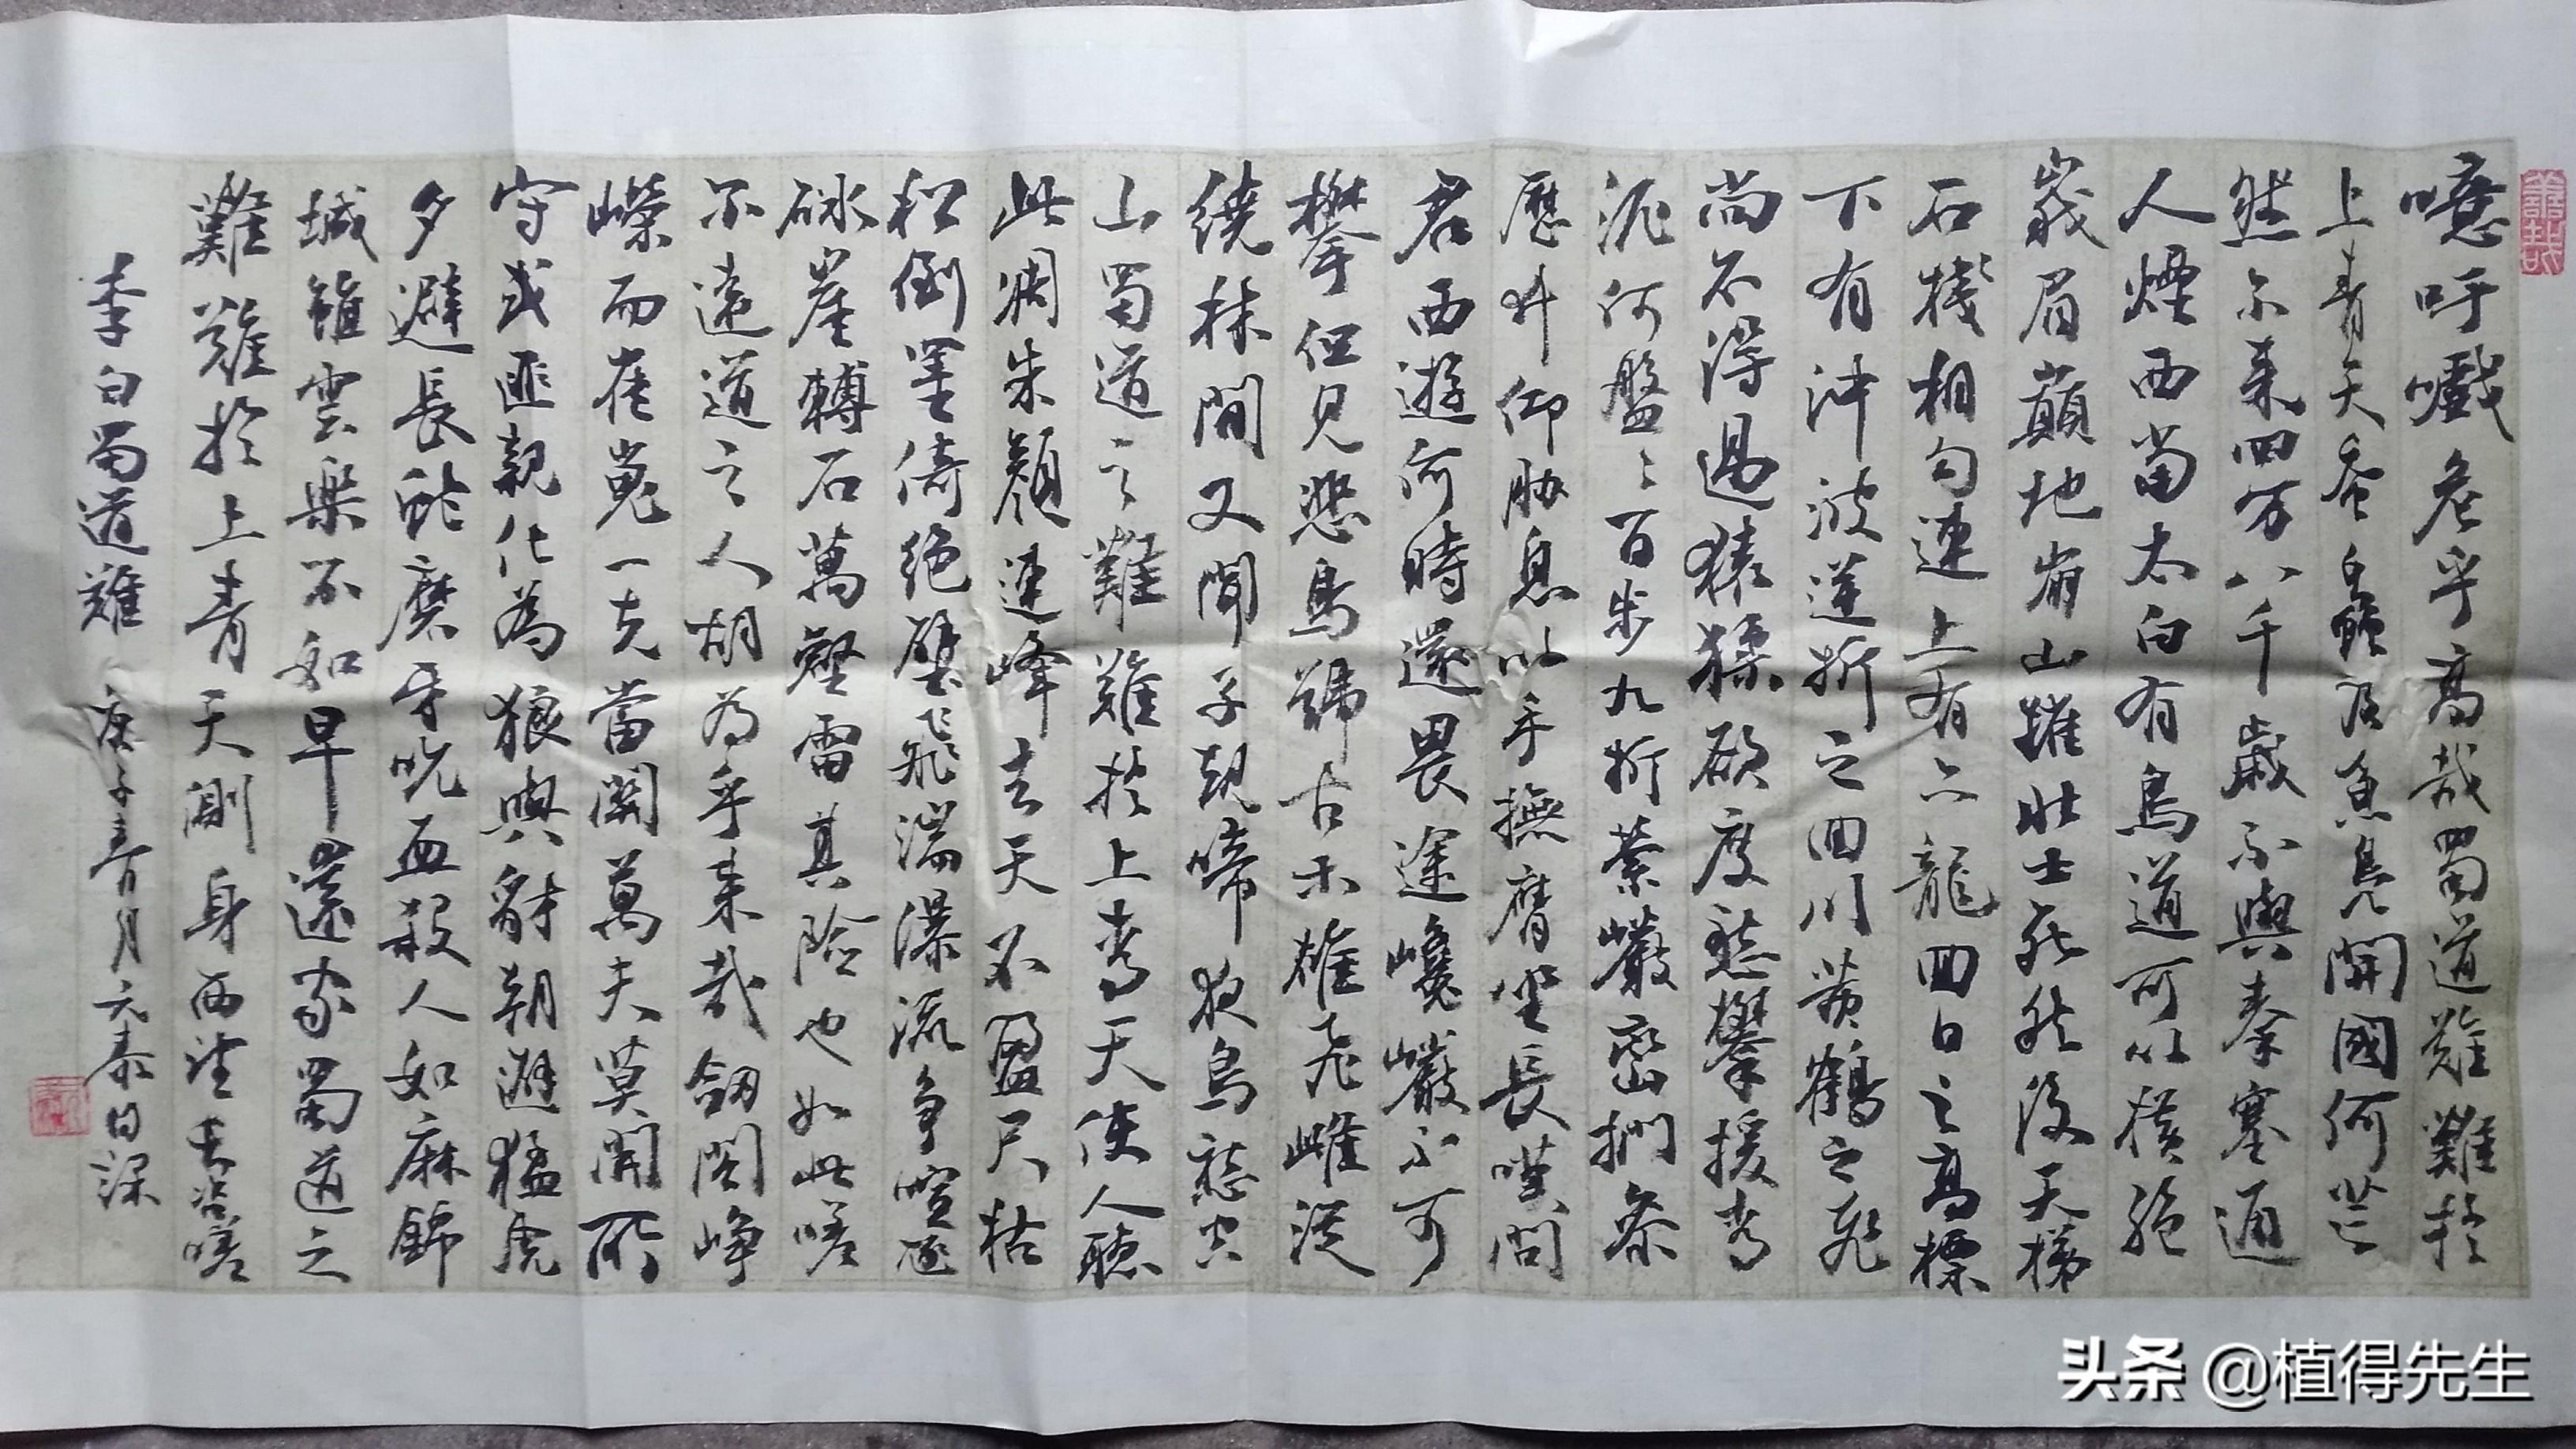 噫吁嚱危乎高哉蜀道難難於
上青天蚕叢及魚鳧開國何茫
然尔来四万八千歲不與秦塞通
人煙西當太白有鳥道可以橫絕
峨眉巔地崩山摧壯士死然後天梯
石棧相勾連上有六龍回日之高標
下有冲波逆折之回川黄鶴之飛
尚不得過猿猱欲度愁攀援青
泥何盤〻百步九折縈巖巒捫參
歷井仰胁息以手撫膺坐長嘆問
君西遊何時還畏途巉巖不可
攀但見悲鳥號古木雄飛雌從
繞林間又聞子規啼夜鳥愁空
山蜀道之難難於上青天使人聽
此凋朱顏連峰去天不盈尺枯
松倒掛倚絕壁飛湍瀑流爭喧豗
砯崖轉石萬壑雷其險也如此嗟
尔遠道之人胡为乎来哉劒閣崢
嶸而崔嵬一夫當關萬夫莫開所
守或匪親化為狼與豺朝避猛虎
夕避長蛇磨牙吮血殺人如麻錦
城雖雲樂不如早還家蜀道之
難難於上青天測身西望長咨嗟
李白蜀道難 庚子青月元泰
善哉
头条 @植得先生